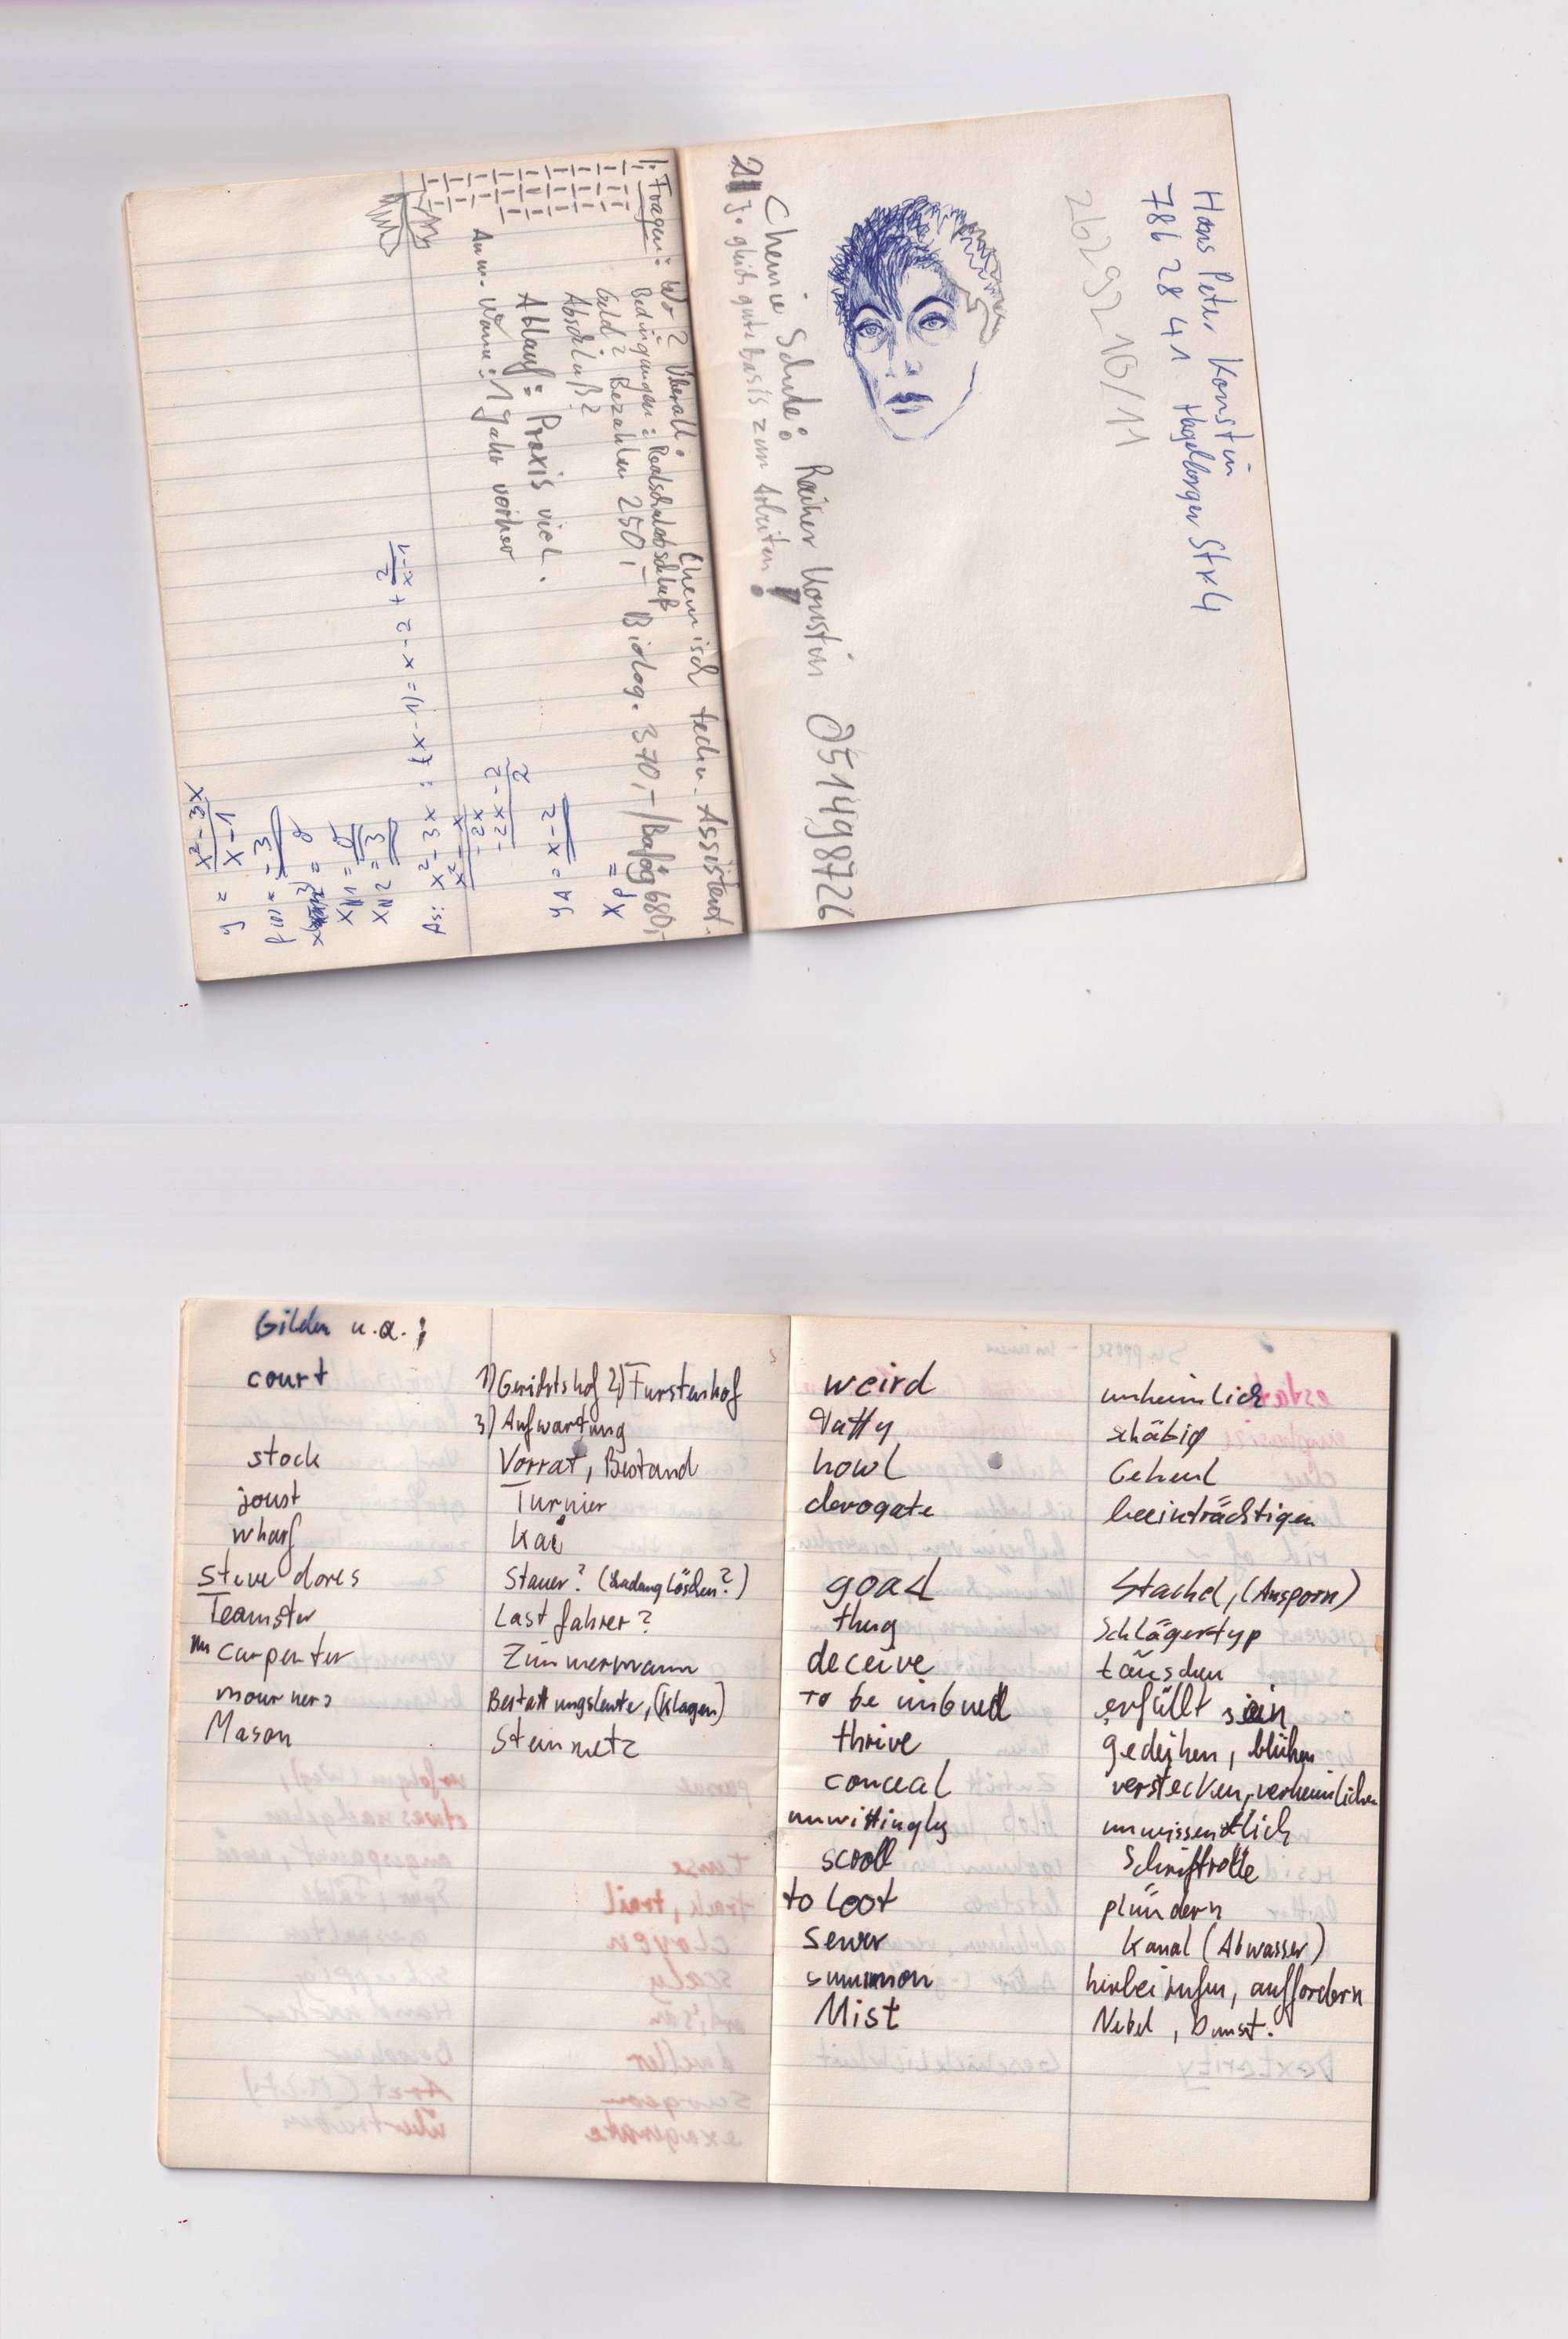 Hans Peter Konstin
786 28 41 Hagelberger Str 4
262 92 10/11
Chemie Schule: Rainer Konstin 05149 8726
2 J. gleich gute Basis zum Arbeiten!
Chemisch techn. Assistent.
1. Fragen: Wo? Überall.
Bedingungen: Realschulabschluß
Geld? Bezahlen 250,- Biolog. 370,-/Bafög 680,-
Abschluß?
Ablauf: Praxis viel.
Anm. Wann: 1 Jahr vorher
y = x² - 3x / x - 1
f(0) = -3
xN1 = 0
xN2 = 3
As: x² - 3x : (x - 1) = x - 2 + 2/x-1
x² - x
-2x
-2x - 2
2
yA = x - 2
xp =
Gilden u.a.:
court 1) Gerichtshof 2) Furstenhof
3) Aufwartung
stock Vorrat, Bestand
joust Turnier
wharf Kai
Steve dores Stauer? (Ladung Löschen?)
Teamster Lastfahrer?
carpenter Zimmermann
mourners Bestattungsleute, (klagen)
Mason Steinmetz
weird unheimlich
tatty schäbig
howl Geheul
derogate beeinträchtigen
goad Stachel, (Ansporn)
thug Schlägertyp
deceive täuschen
to be imbued erfüllt sein
thrive gedeihen, blühen
conceal verstecken, verheimlichen
unwittingly unwissentlich
scroll Schriftrolle
to loot plündern
sewer Kanal (Abwasser)
summon herbeirufen, auffordern
Mist Nebel, Dunst.